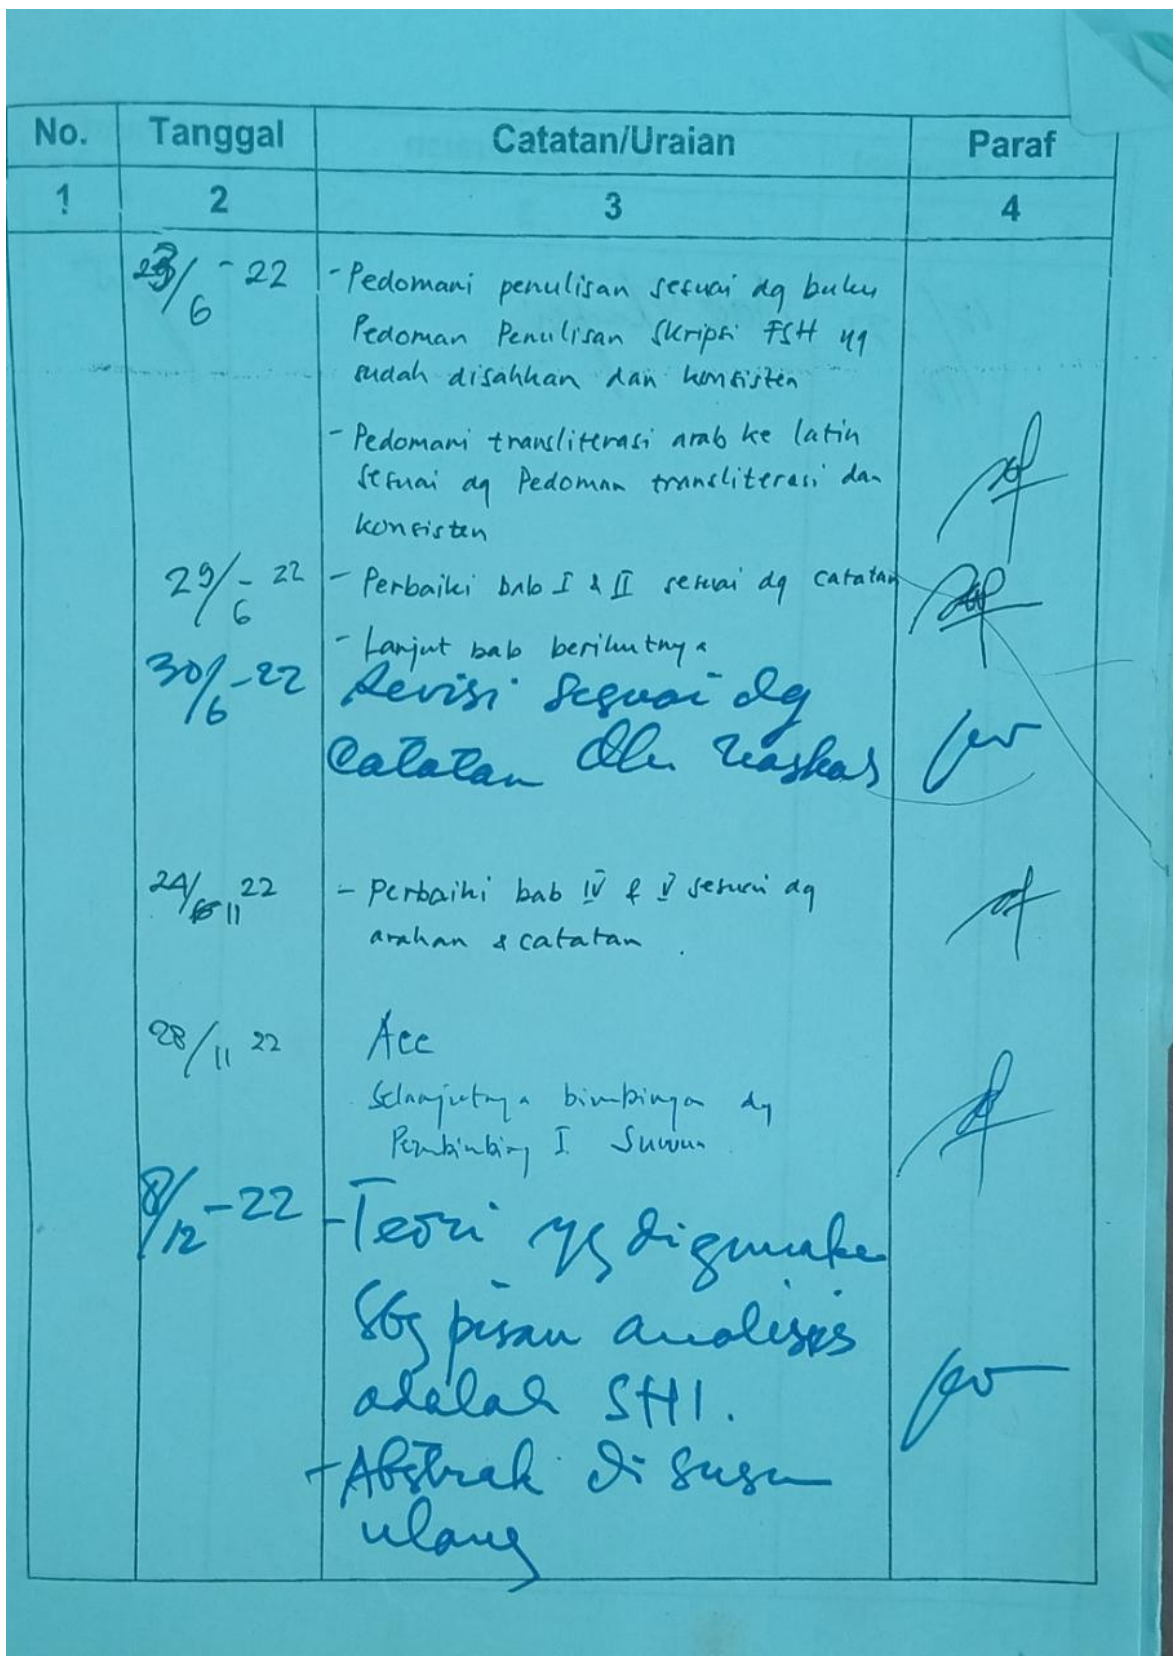 No. Tanggal Catatan/Uraian Paraf
1 2 3 4
23/6 - 22 - Pedomani penulisan sesuai dg buku
Pedoman Penulisan Skripsi FSH yg
sudah disahkan dan konsisten
- Pedomani transliterasi arab ke latin
sesuai dg Pedoman transliterasi dan
konsisten
29/6 - 22 - Perbaiki bab I & II sesuai dg catatan
- Lanjut bab berikutnya
30/6 - 22 Revisi sesuai dg
Catatan dlm naskah
24/11 22 - Perbaiki bab IV & V sesuai dg
arahan & catatan.
28/11 22 Acc
Selanjutnya bimbingan dg
Pembimbing I. Suwun
8/12 - 22 - Teori yg digunakan
sbg pisau analisis
adalah SHI.
- Abstrak disusun
ulang